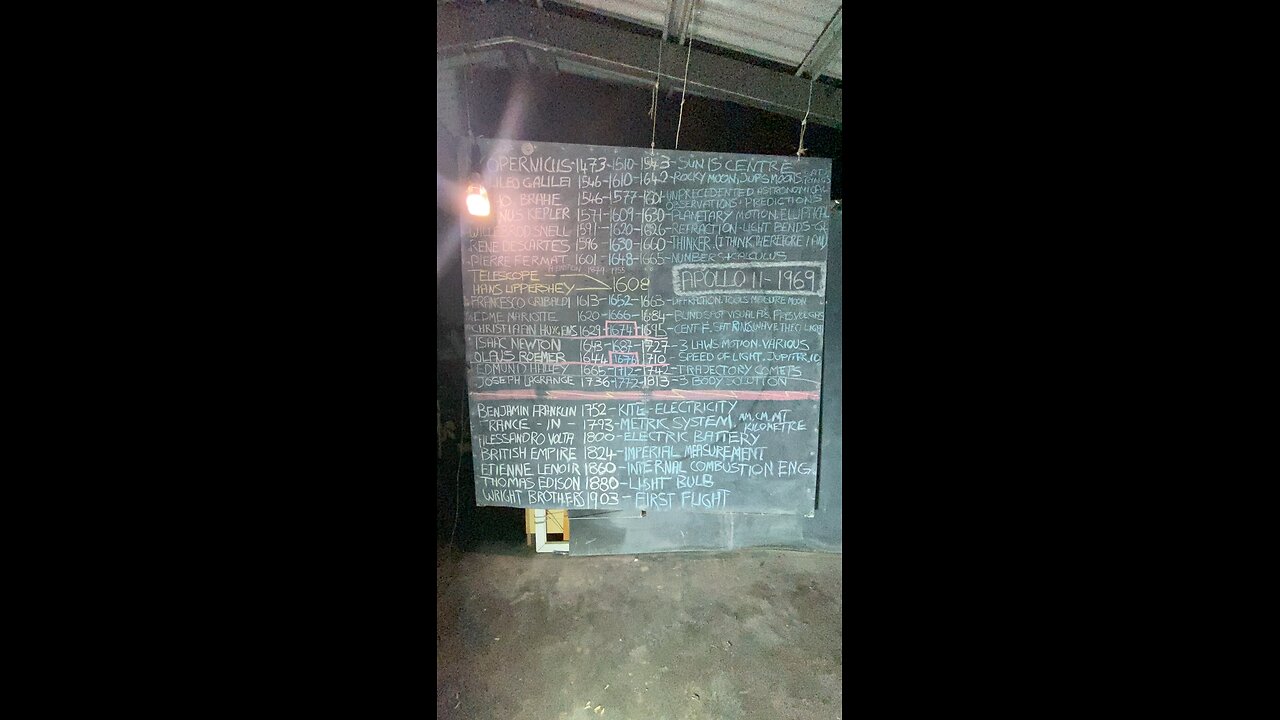 OPERNICUS-1473-1510-1543-SUN IS CENTRE
LILEO GALILEI 1546-1610-1642-ROCKY MOON, JUP'S MOONS
HO. BRAHE 1546-1577-1601 UNPRECEDENTED ASTRONOMICAL OBSERVATIONS+PREDICTIONS
NUS KEPLER 1571-1609-1630-PLANETARY MOTION ELLIPTICAL
WILLEBROD SNELL 1591-1620-1626-REFRACTION-LIGHT BENDS
RENE DESCARTES 1596-1630-1660-THINKER (I THINK THEREFORE I AM)
PIERRE FERMAT 1601-1648-1665-NUMBERS+CALCULUS
TELESCOPE
HANS LIPPERSHEY 1608
APOLLO 11-1969
FRANCESCO GRIBALDI 1613-1652-1663- MOON
EDME MARIOTTE 1620-1666-1684-BLIND SPOT VISUAL
CHRISTIAAN HUYGENS 1629-1674-1695-CENT F. SAT RINGS WAVE THEO LIGH
ISAAC NEWTON 1643-1687-1727-3 LAWS MOTION-VARIOUS
OLAUS ROEMER 1644 1676 1710-SPEED OF LIGHT. JUPITER, IO
EDMUND HALLEY 1665-1712-1742-TRAJECTORY COMETS
JOSEPH LAGRANGE 1736-1772-1813-3 BODY SOLUTION
BENJAMIN FRANKLIN 1752-KITE-ELECTRICITY
FRANCE-IN-1793-METRIC SYSTEM. MM, CM, MT KILOMETRE
ALESSANDRO VOLTA 1800-ELECTRIC BATTERY
BRITISH EMPIRE 1824-IMPERIAL MEASUREMENT
ETIENNE LENOIR 1860-INTERNAL COMBUSTION ENG.
THOMAS EDISON 1880-LIGHT BULB
WRIGHT BROTHERS 1903-FIRST FLIGHT